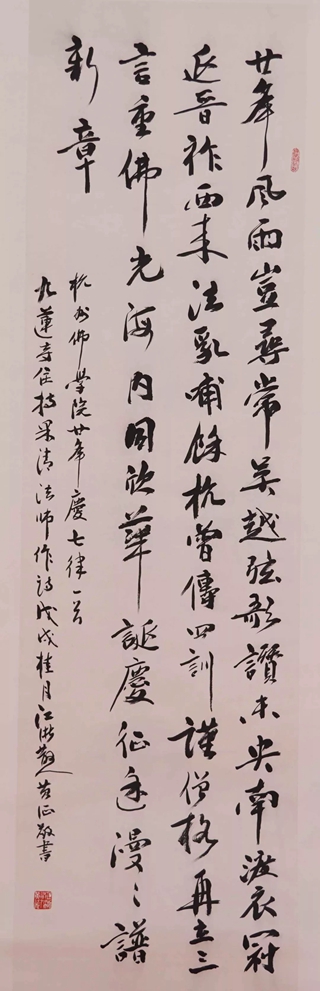 廿年風雨豈尋常吳越弦歌讚未央南渡衣冠
延晉祚西来法乳哺餘杭曾傳四訓謹僧格再立三
言重佛光海內同欣華誕慶征途漫〻譜
新章
杭州佛學院廿年慶七律一首
九蓮寺住持果清法師作詩戊戌桂月江浙散人黃征敬書